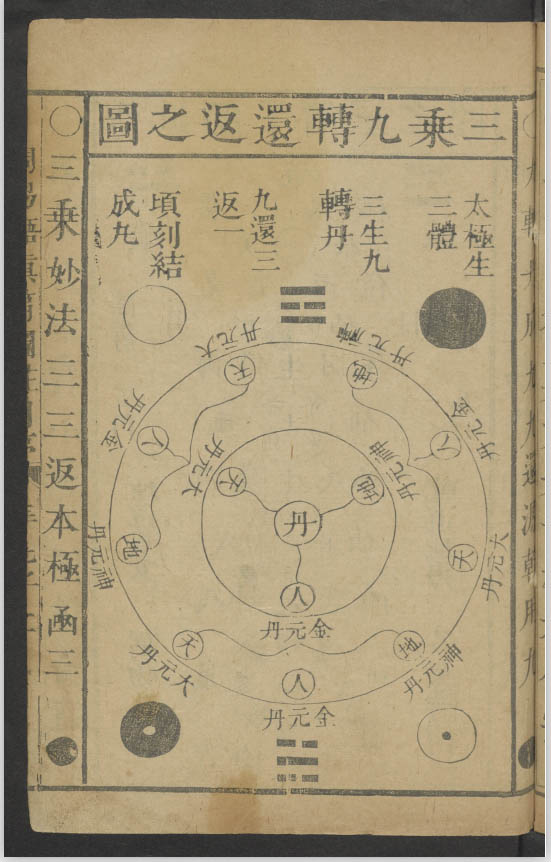 三乘九轉還返之圖
太極生
三體
三生九
轉丹
九還三
返一
頃刻結
成丸
神元丹
地
大元丹
天
金元丹
人
金元丹
人
神元丹
地
大元丹
天
大元丹
天
神元丹
地
丹
人
金元丹
地
神元丹
天
大元丹
人
金元丹
○三乘妙法三三返本極函三